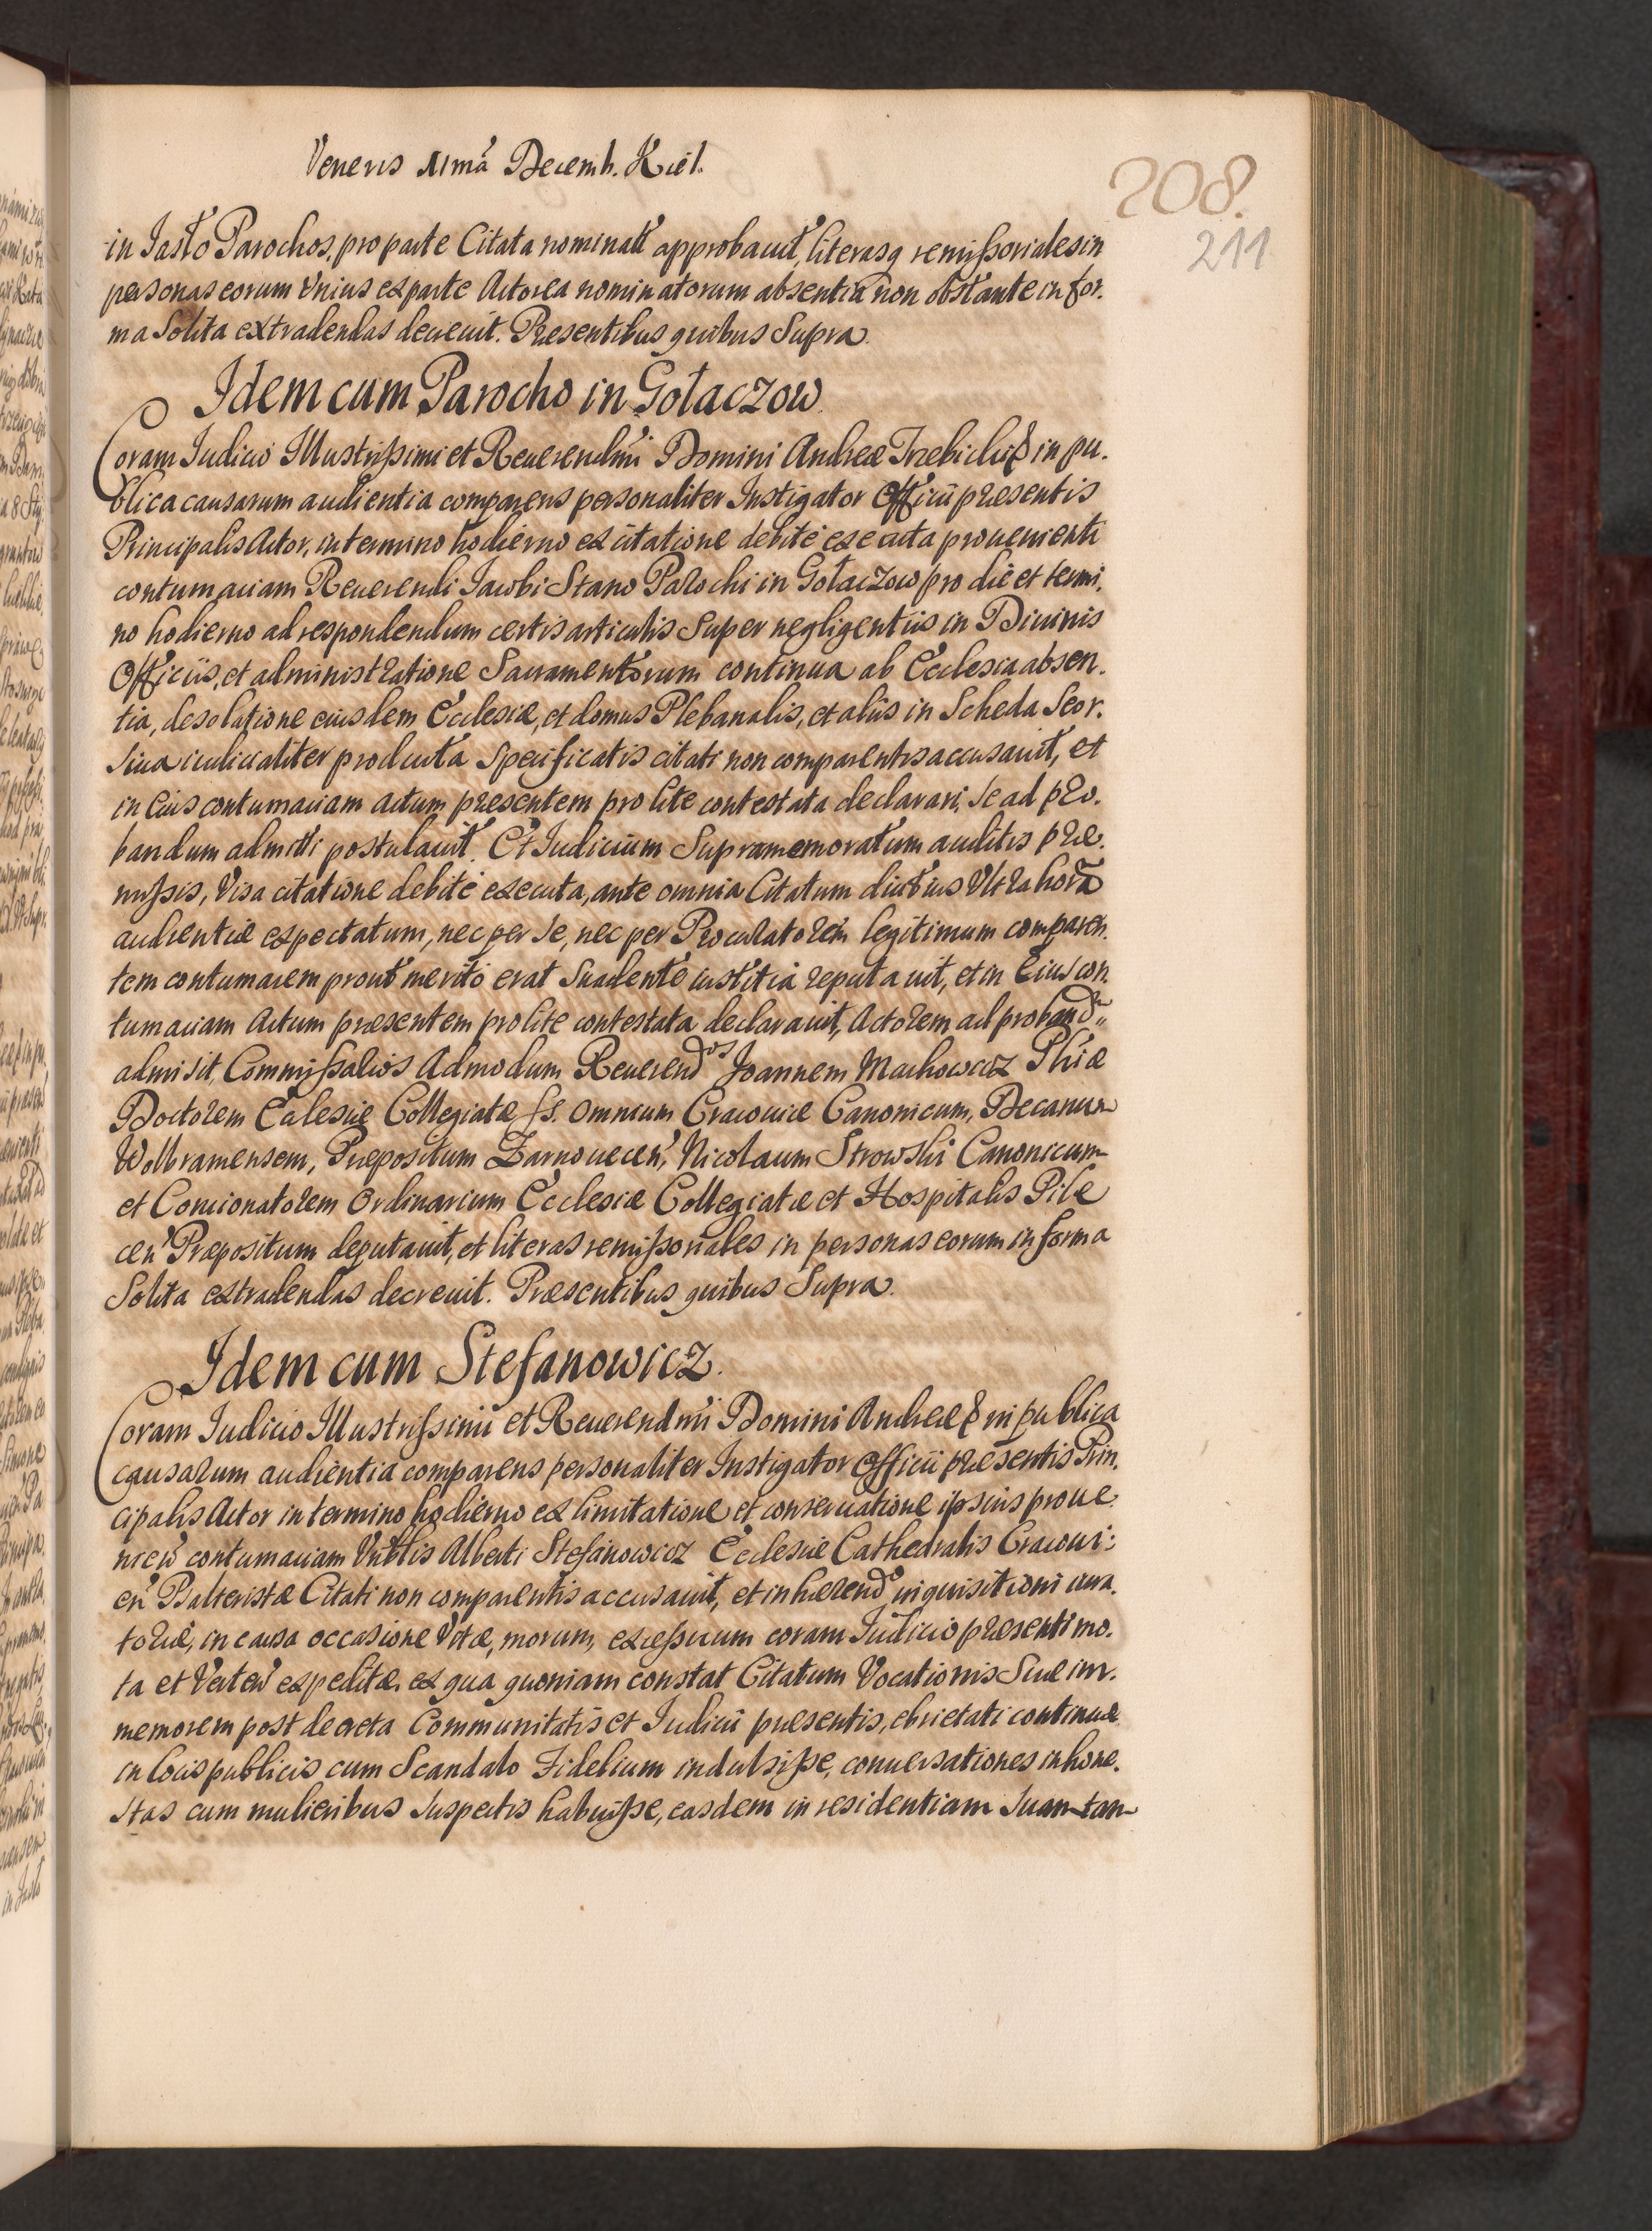 Veneris 11mâ Decemb. Kiel.
208.
211
in Jasło Parochos, pro parte Citata nominatt approbauit, literasq remissoriales in
personas eorum Vnius ex parte Actorea nominatorum absentia non obstante in for.
ma Solita extradendas decreuit. Præsentibus quibus Supra.
Idem cum Parocho in Gołaczow
Coram Iudicio Illustrissimi et Reuerendmi Domini Andreæ Trzebicki & in pu.
blica causarum audientia comparens personaliter Instigator Officii præsentis
Principalis Actor, in termino hodierno ex citatione debite executa prouenienti
contumaciam Reuerendi Iacobi Stano Parochi in Gołaczow pro die et termi.
no hodierno ad respondendum certis articulis Super negligentiis in Diuinis
Officiis, et administratione Sacramentorum continua ab Ecclesia absen.
tia, desolatione eiusdem Ecclesiæ, et domus Plebanalis, et aliis in Scheda Seor.
siua iudicialiter producta Specificatis citati non comparentis accusauit, et
in Eius contumaciam actum præsentem pro lite contestata declarari, Se ad pro.
bandum admitti postulauit. Et Iudicium Supramemoratum auditis præ.
missis, Visa citatione debite executa, ante omnia Citatum diutius Vltra horã
audientiæ expectatum, nec per Se, nec per Procuratorem legitimum comparen.
tem contumacem prout merito erat Suadente iustitia reputauit, et in Eius con.
tumaciam Actum præsentem pro lite contestata declarauit, Actorem ad proband̃„
admisit, Commissarios Admodum Reuerendos Joannem Machowicz Phiæ
Doctorem Ecclesiæ Collegiatæ SS. Omnium Cracouiæ Canonicum, Decanum
Wolbramensem, Præpositum Zarnouecen', Nicolaum Strowski Canonicum
et Concionatorem Ordinarium Ecclesiæ Collegiatæ et Hospitalis Pile
cen' Præpositum deputauit, et literas remissoriales in personas eorum in forma
Solita extradendas decreuit. Præsentibus quibus Supra.
Idem cum Stefanowicz.
Coram Iudicio Illustrissimi et Reuerendmi Domini Andreæ & in publica
causarum audientia comparens personaliter Instigator Officii præsentis Prin.
cipalis Actor in termino hodierno ex limitatione et conseruatione ipsius proue.
nien' contumaciam Vnblis Alberti Stefanowicz Ecclesiæ Cathedralis Cracoui:
en' Psalteristæ Citati non comparentis accusauit, et inhærendo inquisitioni iura.
toriæ, in causa occasione Vitæ, morum, excessuum coram Iudicio præsenti mo.
ta et Verten' expeditæ. ex qua quoniam constat Citatum Vocationis Suæ im.
memorem post decreta Communitatis et Iudicii præsentis, ebrietati continuæ
in locis publicis cum Scandalo Fidelium indulsisse, conuersationes inhone.
stas cum mulieribus Suspectis habuisse, easdem in residentiam Suam tan